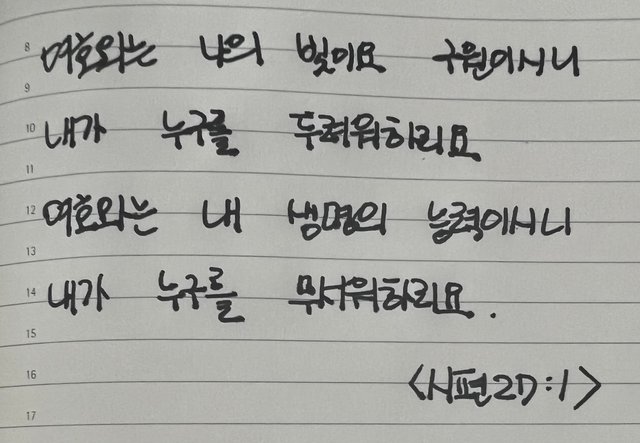 8
여호와는 나의 빛이요 구원이시니
9
10
내가 누구를 두려워하리요
11
12
여호와는 내 생명의 능력이시니
13
14
내가 누구를 무서워하리요.
15
16
<시편27:1>
17